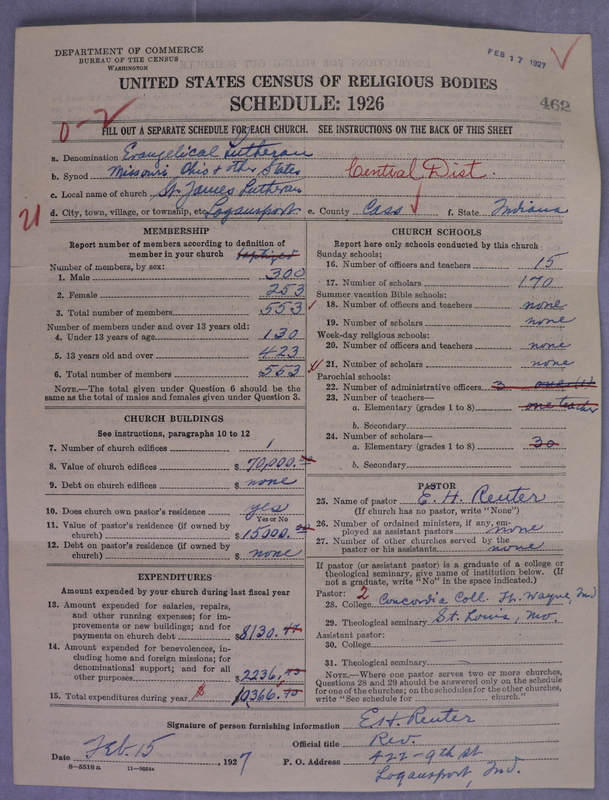 DEPARTMENT OF COMMERCE
BUREAU OF THE CENSUS
WASHINGTON
FEB 17 1927
UNITED STATES CENSUS OF RELIGIOUS BODIES
SCHEDULE: 1926
462
0-2
FILL OUT A SEPARATE SCHEDULE FOR EACH CHURCH. SEE INSTRUCTIONS ON THE BACK OF THIS SHEET
a. Denomination Evangelical Lutheran
b. Synod Missouri Ohio & other States Central Dist.
c. Local name of church St. James Lutheran
d. City, town, village, or township, etc. Logansport e. County Cass f. State Indiana
21
MEMBERSHIP
Report number of members according to definition of
member in your church baptized
Number of members, by sex:
1. Male 300
2. Female 253
3. Total number of members 553
Number of members under and over 13 years old:
4. Under 13 years of age 130
5. 13 years old and over 423
6. Total number of members 553
NOTE.—The total given under Question 6 should be the
same as the total of males and females given under Question 3.
CHURCH BUILDINGS
See instructions, paragraphs 10 to 12
7. Number of church edifices 1
8. Value of church edifices $70,000.00
9. Debt on church edifices $ none
10. Does church own pastor's residence yes
Yes or No
11. Value of pastor's residence (if owned by
church) $15000.00
12. Debt on pastor's residence (if owned by
church) $ none
EXPENDITURES
Amount expended by your church during last fiscal year
13. Amount expended for salaries, repairs,
and other running expenses; for im-
provements or new buildings; and for
payments on church debt $8130.
14. Amount expended for benevolences, in-
cluding home and foreign missions; for
denominational support; and for all
other purposes $2236.
15. Total expenditures during year $ 10366.
CHURCH SCHOOLS
Report here only schools conducted by this church
Sunday schools:
16. Number of officers and teachers 15
17. Number of scholars 170
Summer vacation Bible schools:
18. Number of officers and teachers none
19. Number of scholars none
Week-day religious schools:
20. Number of officers and teachers none
21. Number of scholars none
Parochial schools:
22. Number of administrative officers 3 one (1)
23. Number of teachers—
a. Elementary (grades 1 to 8) one teacher
b. Secondary
24. Number of scholars—
a. Elementary (grades 1 to 8) 30
b. Secondary
PASTOR
25. Name of pastor E. H. Reuter
(If church has no pastor, write "None")
26. Number of ordained ministers, if any, em-
ployed as assistant pastors none
27. Number of other churches served by the
pastor or his assistants none
If pastor (or assistant pastor) is a graduate of a college or
theological seminary, give name of institution below. (If
not a graduate, write "No" in the space indicated.)
Pastor: 2
28. College Concordia Coll. Ft. Wayne, Ind
29. Theological seminary St. Louis, Mo.
Assistant pastor:
30. College
31. Theological seminary
NOTE.—Where one pastor serves two or more churches,
Questions 28 and 29 should be answered only on the schedule
for one of the churches; on the schedules for the other churches,
write "See schedule for church."
Signature of person furnishing information E. H. Reuter
Official title Rev.
Date Feb. 15, 1927 P. O. Address 422-9th St
Logansport, Ind.
8—5518a